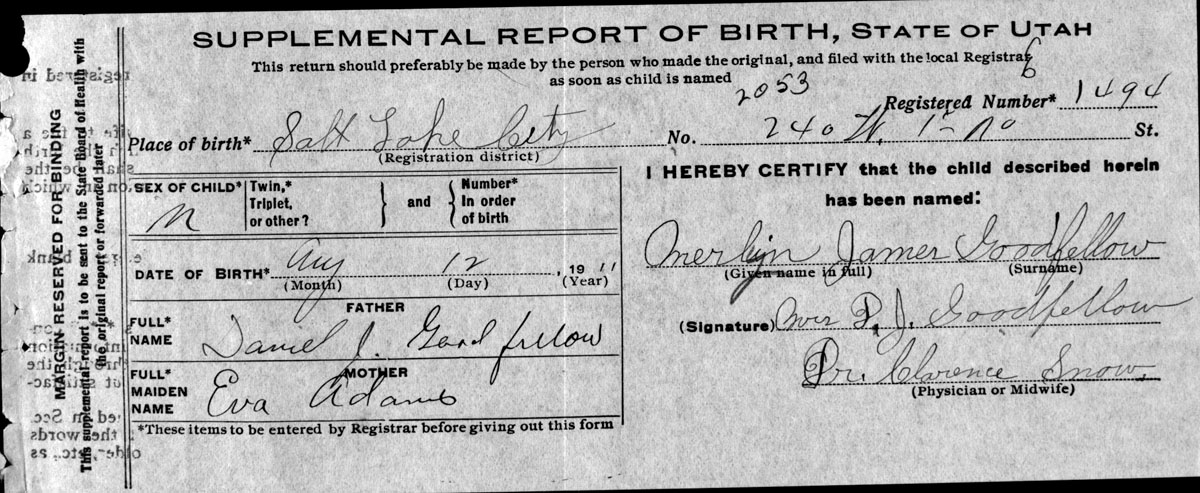 SUPPLEMENTAL REPORT OF BIRTH, STATE OF UTAH
This return should preferably be made by the person who made the original, and filed with the local Registrar
as soon as child is named
2053
Registered Number* 1494
Place of birth* Salt Lake City No. 240 W. 1st No St.
(Registration district)
SEX OF CHILD* M
Twin,* Triplet, or other? } and { Number* In order of birth
DATE OF BIRTH* Aug 12, 1911
(Month) (Day) (Year)
FATHER
FULL* NAME Daniel J. Goodfellow
MOTHER
FULL* MAIDEN NAME Eva Adams
*These items to be entered by Registrar before giving out this form
I HEREBY CERTIFY that the child described herein
has been named:
Merlyn James Goodfellow
(Given name in full) (Surname)
(Signature) Mrs D. J. Goodfellow
Dr. Clarence Snow.
(Physician or Midwife)
MARGIN RESERVED FOR BINDING
This supplemental report is to be sent to the State Board of Health with
the original report or forwarded later